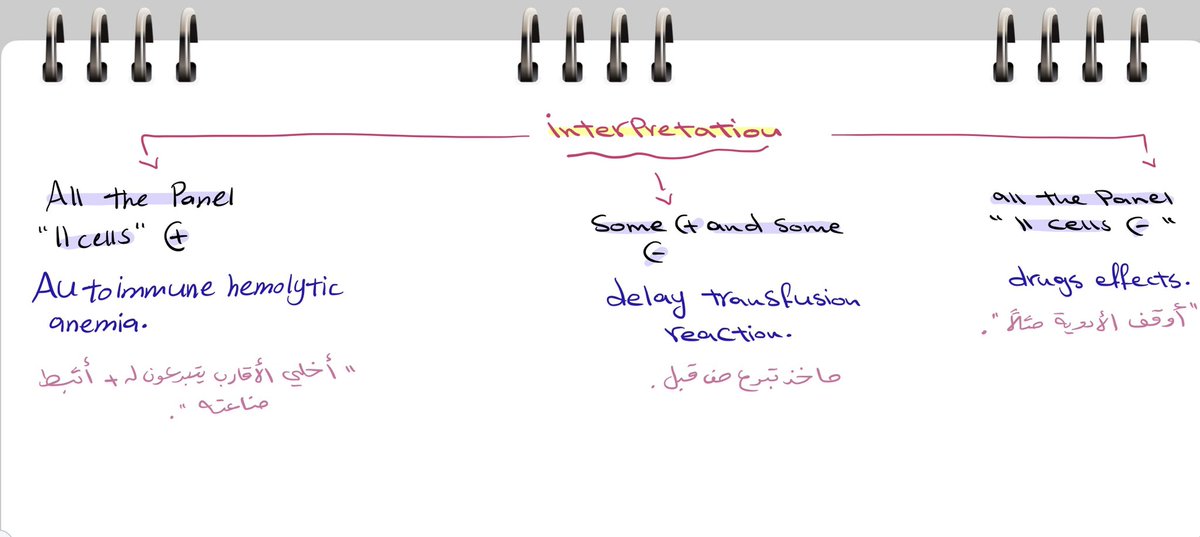 interpretation
All the Panel
"11 cells" (+
Autoimmune hemolytic
anemia.
"أخلي الأقارب يتبرعون له + أثبط
مناعته".
Some (+ and some
(-
delay transfusion
reaction.
ماخذ تبرع من قبل.
all the Panel
"11 cells (- "
drugs effects.
"أوقف الأدوية مثلاً".